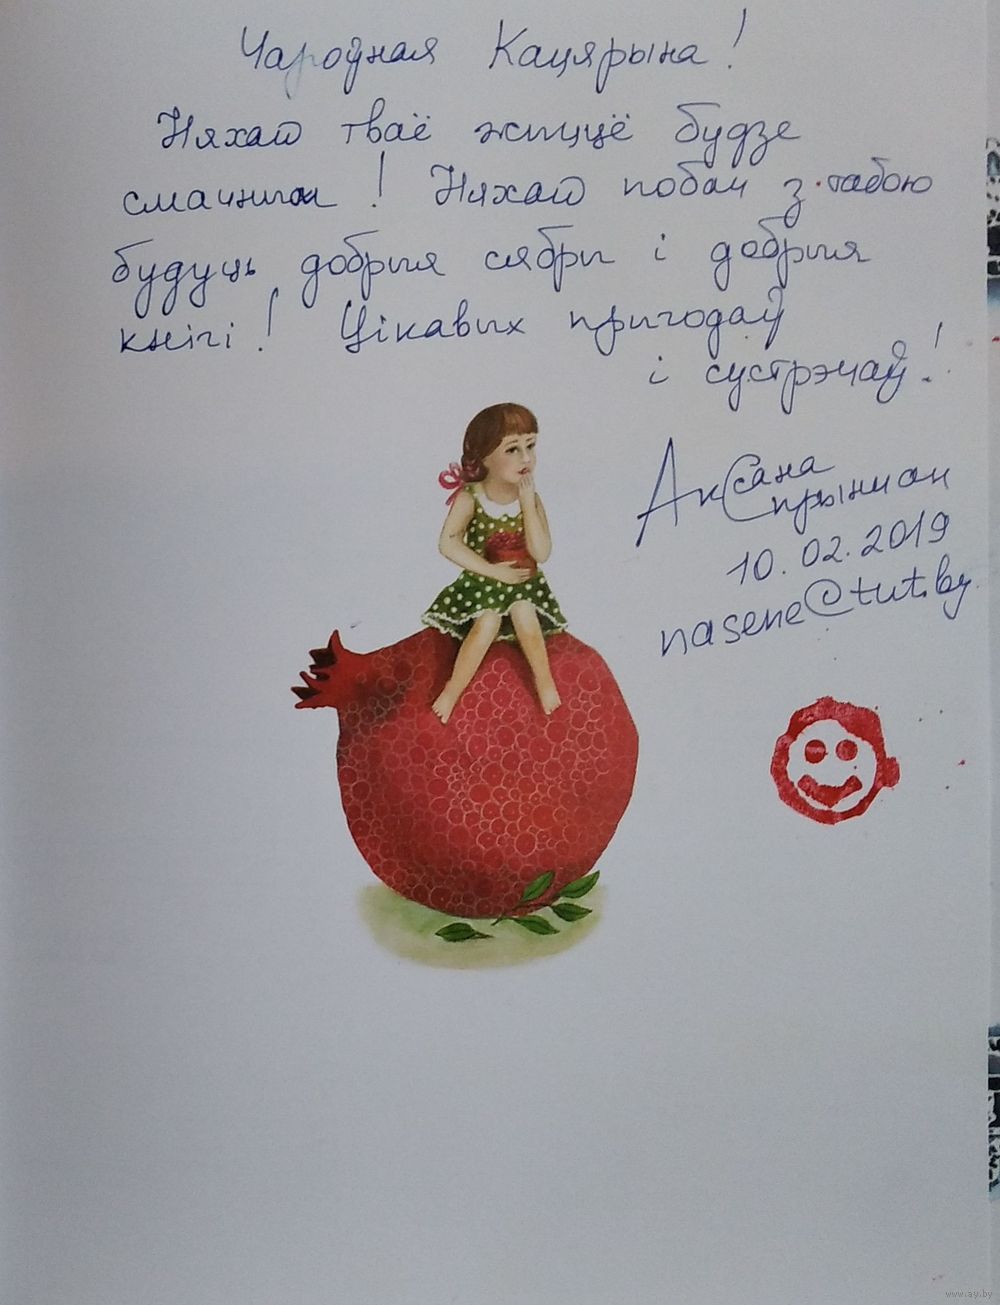 Чароўная Кацярына!
Няхай тваё жыццё будзе
смачным! Няхай побач з табою
будуць добрыя сябры і добрыя
кнігі! Цікавых прыгодаў
і сустрэчаў!
Аксана
Спрынчан
10.02.2019
nasene@tut.by
www.ay.by